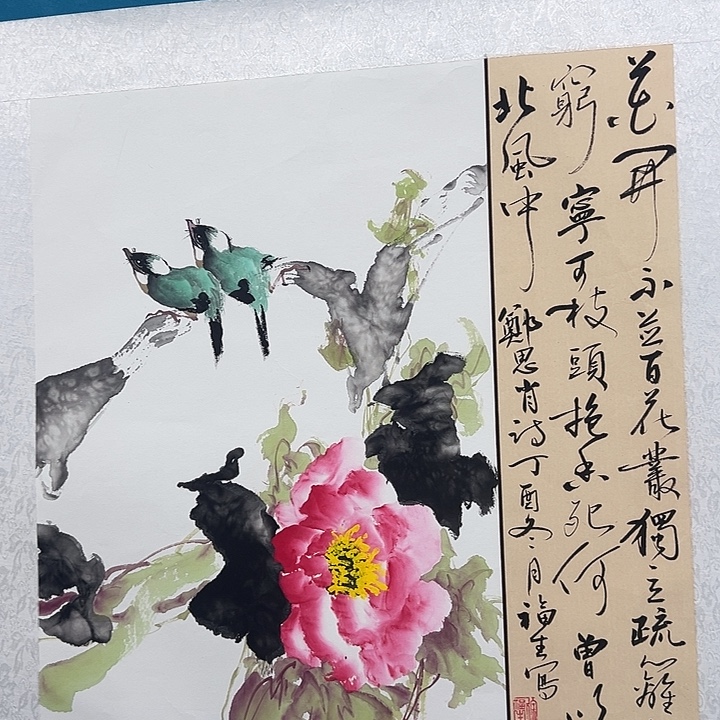 花開不並百花叢獨立疏籬
窮寧可枝頭抱香死何曾
北風中鄭思肖詩丁酉冬月福生寫